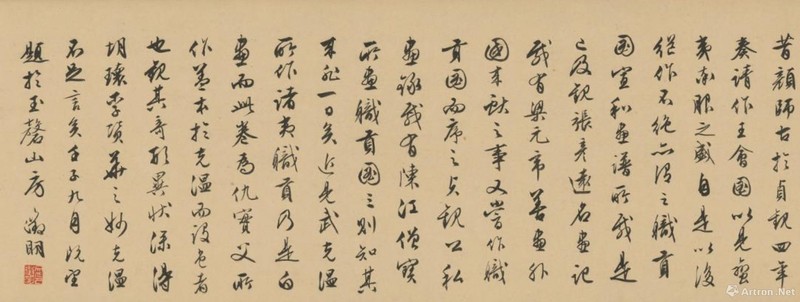 昔顏師古於貞觀四年
奏請作王會圖以見蠻
夷率服之盛自是以後
繼作不絕亦謂之職貢
圖宣和畫譜所載是
已及觀張彥遠名畫記
載有梁元帝善畫外
國來獻之事又嘗作職
貢圖而序之貞觀公私
畫錄載有陳江僧寶
所畫職貢圖三則知其
來非一日矣近見武克溫
所作諸夷職貢乃是白
畫而此卷為仇實父所
作蓋本於克溫而設色者
也觀其奇形異狀深得
胡瓌李贊華之妙克溫
不足言矣壬子九月既望
題於玉磬山房徵明
Artron.Net